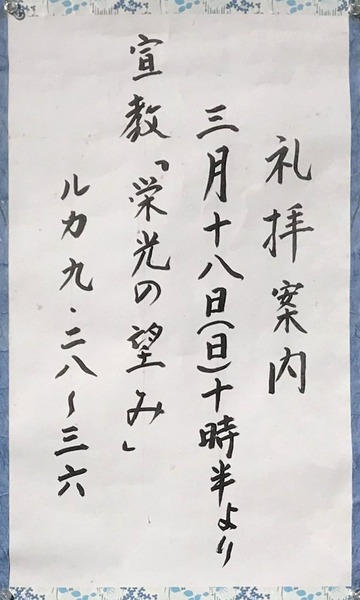 礼拝案内
三月十八日(日)十時半より
宣教「栄光の望み」
ルカ九・二八〜三六